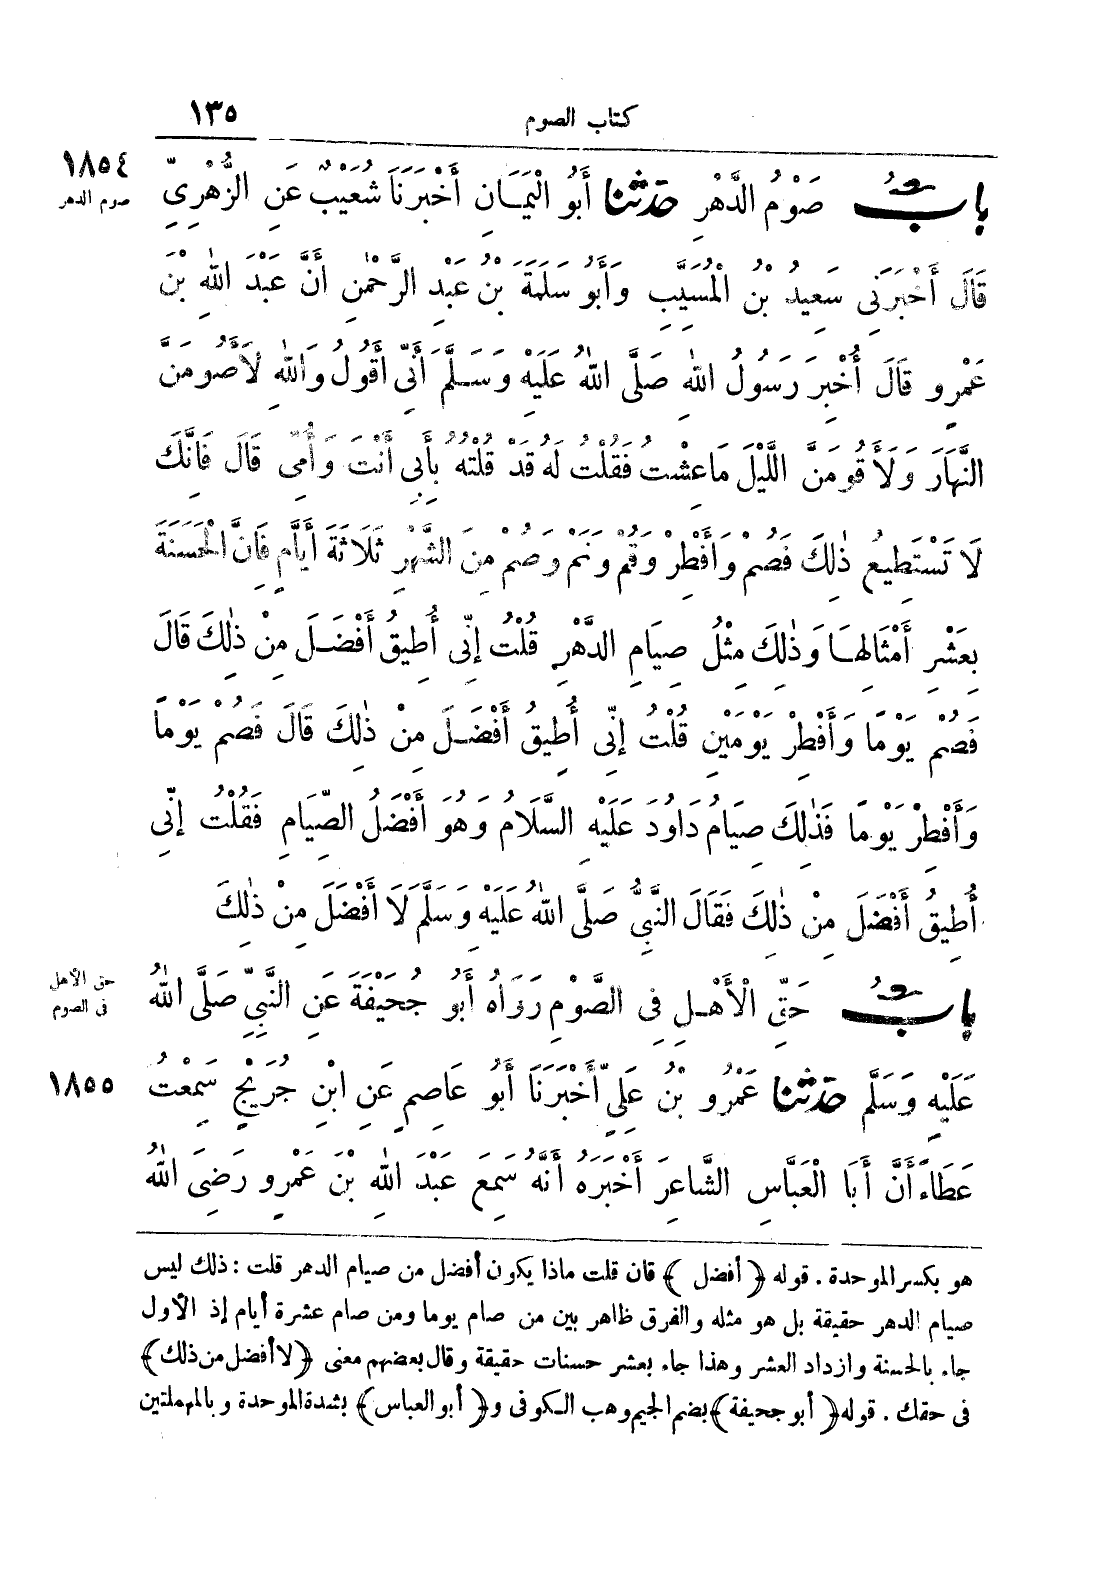 كتاب الصوم ١٣٥
١٨٥٤
صوم الدهر
بابٌ صَوْمُ الدَّهْرِ حَدَّثَنَا أَبُو الْيَمَانِ أَخْبَرَنَا شُعَيْبٌ عَنِ الزُّهْرِيِّ
قَالَ أَخْبَرَنِي سَعِيدُ بْنُ الْمُسَيَّبِ وَأَبُو سَلَمَةَ بْنُ عَبْدِ الرَّحْمٰنِ أَنَّ عَبْدَ اللهِ بْنَ
عَمْرٍو قَالَ أُخْبِرَ رَسُولُ اللهِ صَلَّى اللهُ عَلَيْهِ وَسَلَّمَ أَنِّي أَقُولُ وَاللهِ لَأَصُومَنَّ
النَّهَارَ وَلَأَقُومَنَّ اللَّيْلَ مَا عِشْتُ فَقُلْتُ لَهُ قَدْ قُلْتُهُ بِأَبِي أَنْتَ وَأُمِّي قَالَ فَإِنَّكَ
لَا تَسْتَطِيعُ ذٰلِكَ فَصُمْ وَأَفْطِرْ وَقُمْ وَنَمْ وَصُمْ مِنَ الشَّهْرِ ثَلَاثَةَ أَيَّامٍ فَإِنَّ الْحَسَنَةَ
بِعَشْرِ أَمْثَالِهَا وَذٰلِكَ مِثْلُ صِيَامِ الدَّهْرِ قُلْتُ إِنِّي أُطِيقُ أَفْضَلَ مِنْ ذٰلِكَ قَالَ
فَصُمْ يَوْمًا وَأَفْطِرْ يَوْمَيْنِ قُلْتُ إِنِّي أُطِيقُ أَفْضَلَ مِنْ ذٰلِكَ قَالَ فَصُمْ يَوْمًا
وَأَفْطِرْ يَوْمًا فَذٰلِكَ صِيَامُ دَاوُدَ عَلَيْهِ السَّلَامُ وَهُوَ أَفْضَلُ الصِّيَامِ فَقُلْتُ إِنِّي
أُطِيقُ أَفْضَلَ مِنْ ذٰلِكَ فَقَالَ النَّبِيُّ صَلَّى اللهُ عَلَيْهِ وَسَلَّمَ لَا أَفْضَلَ مِنْ ذٰلِكَ
حق الأهل
فى الصوم
بابٌ حَقِّ الْأَهْلِ فِي الصَّوْمِ رَوَاهُ أَبُو جُحَيْفَةَ عَنِ النَّبِيِّ صَلَّى اللهُ
١٨٥٥
عَلَيْهِ وَسَلَّمَ حَدَّثَنَا عَمْرُو بْنُ عَلِيٍّ أَخْبَرَنَا أَبُو عَاصِمٍ عَنِ ابْنِ جُرَيْجٍ سَمِعْتُ
عَطَاءً أَنَّ أَبَا الْعَبَّاسِ الشَّاعِرَ أَخْبَرَهُ أَنَّهُ سَمِعَ عَبْدَ اللهِ بْنَ عَمْرٍو رَضِيَ اللهُ
هو بكسر الموحدة . قوله ﴿أفضل﴾ فان قلت ماذا يكون أفضل من صيام الدهر قلت : ذلك ليس
صيام الدهر حقيقة بل هو مثله والفرق ظاهر بين من صام يوما ومن صام عشرة أيام إذ الأول
جاء بالحسنة وازداد العشر وهذا جاء بعشر حسنات حقيقة وقال بعضهم معنى ﴿لا أفضل من ذلك﴾
فى حقك . قوله ﴿أبو جحيفة﴾ بضم الجيم وهب الكوفى و﴿أبو العباس﴾ بشدة الموحدة وبالمهملتين